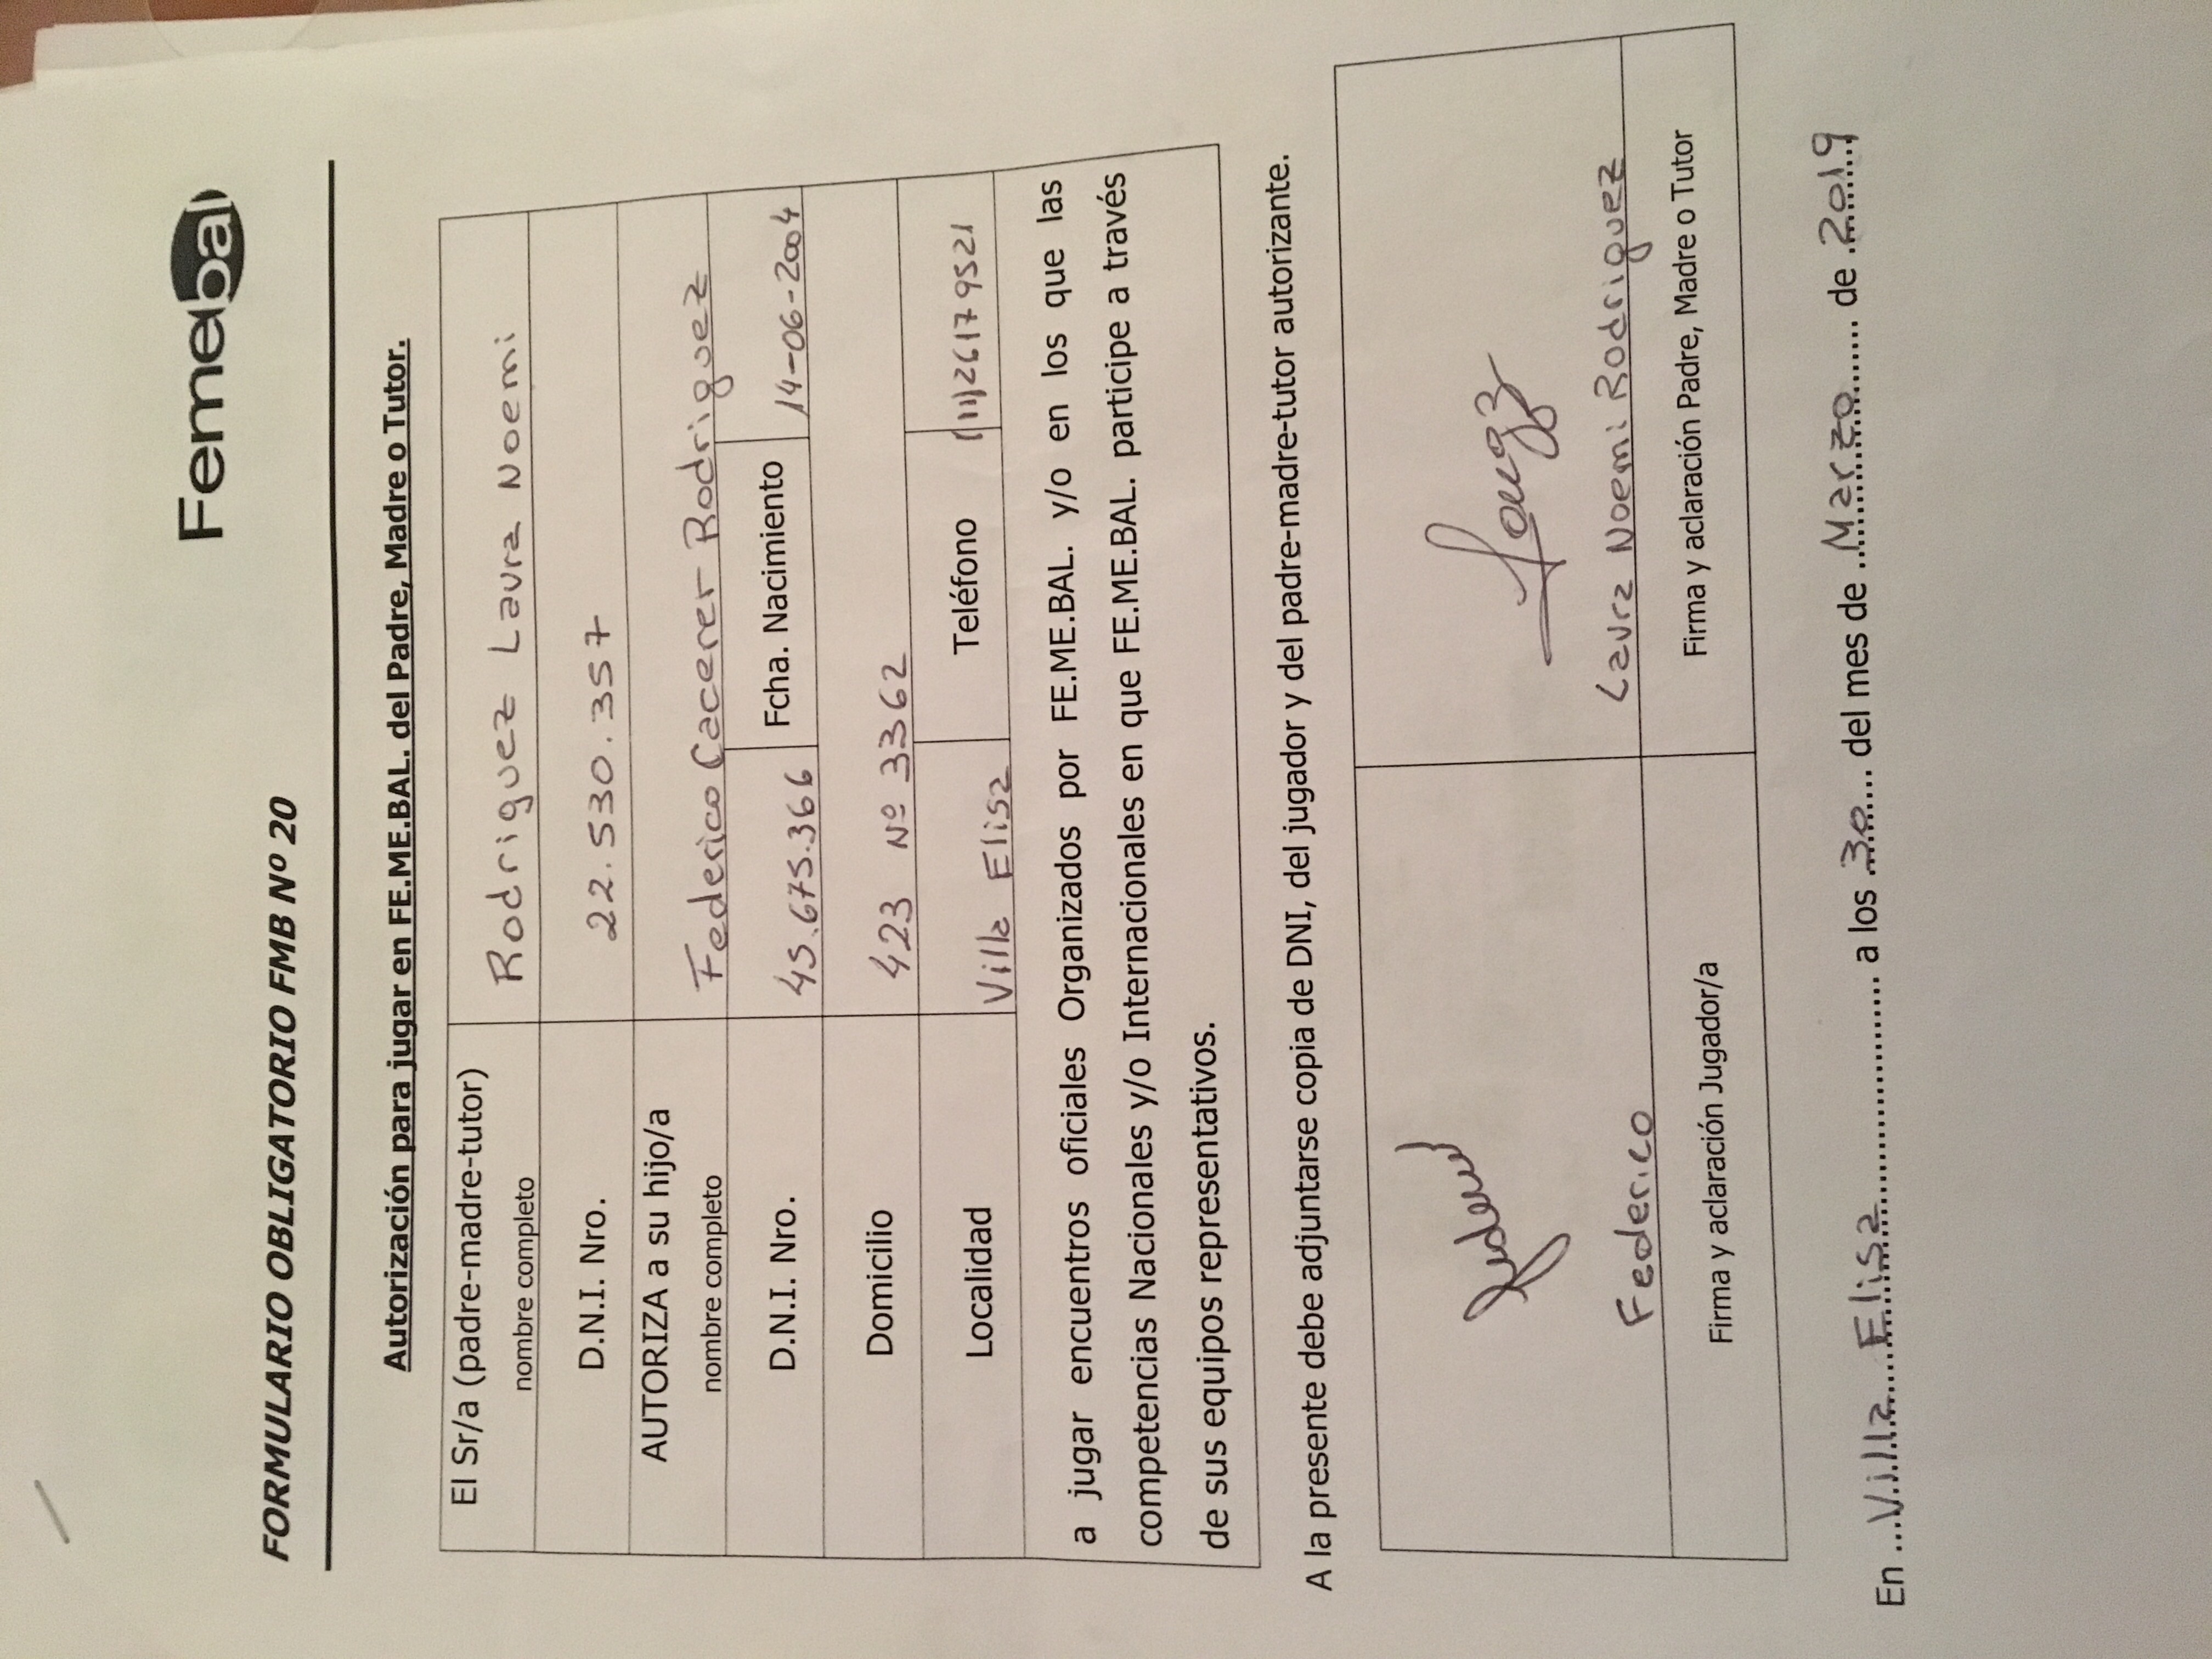 Femebal
FORMULARIO OBLIGATORIO FMB Nº 20
Autorización para jugar en FE.ME.BAL. del Padre, Madre o Tutor.
El Sr/a (padre-madre-tutor) Rodriguez Laura Noemi
nombre completo
D.N.I. Nro. 22.530.357
AUTORIZA a su hijo/a Federico Cacerer Rodriguez
nombre completo
D.N.I. Nro. 45.675.366 Fcha. Nacimiento 14-06-2004
Domicilio 423 Nº 3362
Localidad Villa Elisa Teléfono (11)26179521
a jugar encuentros oficiales Organizados por FE.ME.BAL. y/o en los que las
competencias Nacionales y/o Internacionales en que FE.ME.BAL. participe a través
de sus equipos representativos.
A la presente debe adjuntarse copia de DNI, del jugador y del padre-madre-tutor autorizante.
Federico Laura Noemi Rodriguez
Firma y aclaración Jugador/a Firma y aclaración Padre, Madre o Tutor
En Villa Elisa a los 30 del mes de Marzo de 2019